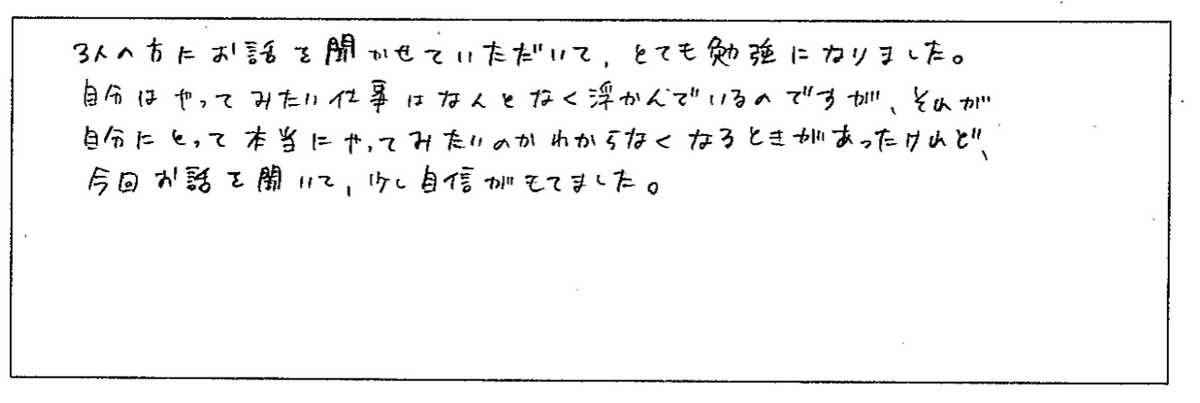 3人の方にお話を聞かせていただいて、とても勉強になりました。
自分はやってみたい仕事はなんとなく浮かんでいるのですが、それが
自分にとって本当にやってみたいのかわからなくなるときがあったけれど、
今回お話を聞いて、少し自信がもてました。